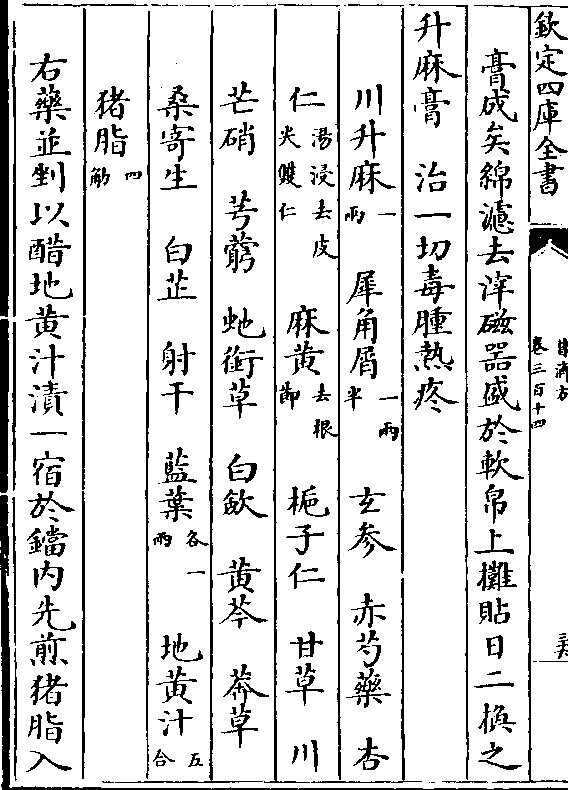 欽定四庫全書
普濟方
卷三百十四
膏成矣綿濾去滓磁器盛於軟帛上攤貼日二換之
升麻膏 治一切毒腫熱疼
川升麻一兩 犀角屑一兩半 玄參 赤芍藥 杏
仁湯浸去皮尖雙仁 麻黄去根節 梔子仁 甘草 川
芒硝 芎藭 虵銜草 白蘞 黄芩 莽草
桑寄生 白芷 射干 藍葉各一兩 地黄汁五合
猪脂四觔
右藥並剉以醋地黄汁漬一宿於鐺内先煎猪脂入